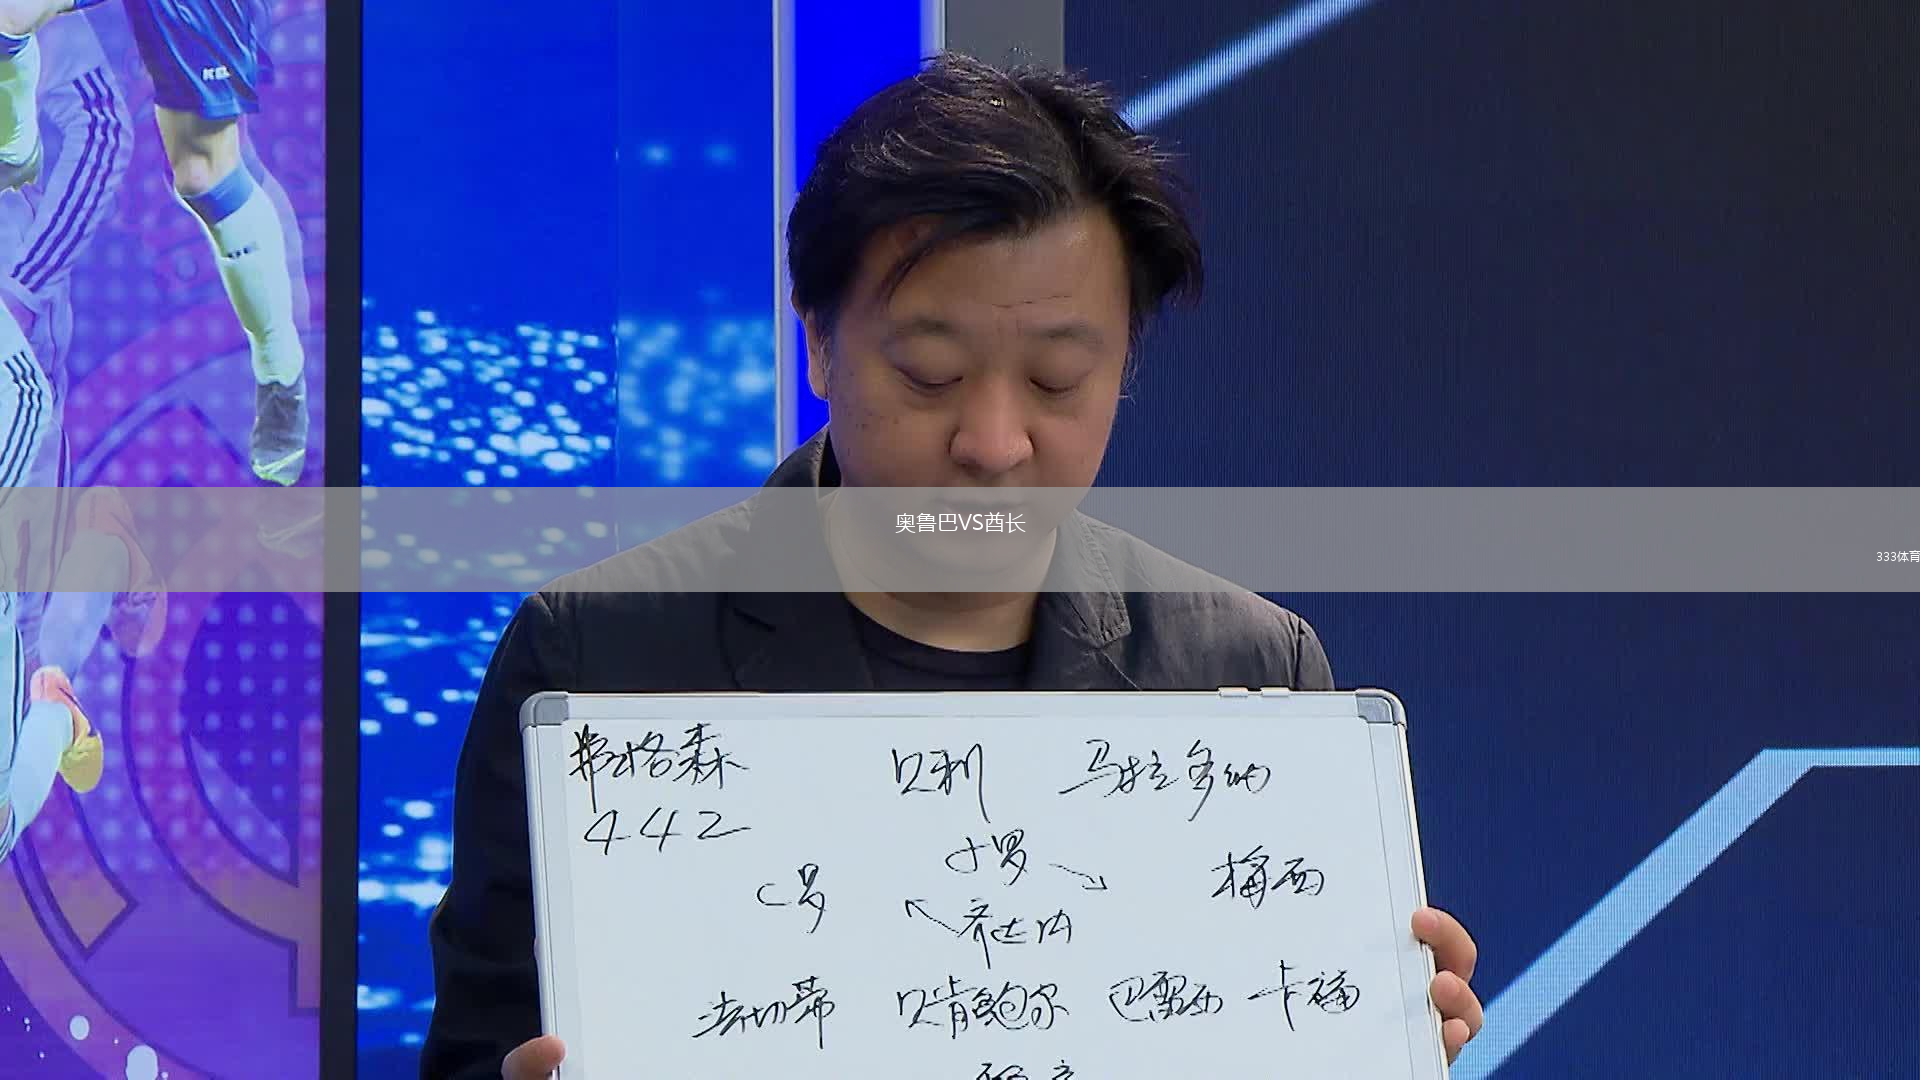 奥鲁巴VS酋长
333体育
弗格森 贝利 马拉多纳
442
小罗
C罗 梅西
齐达内
法切蒂 贝肯鲍尔 巴雷西 卡福